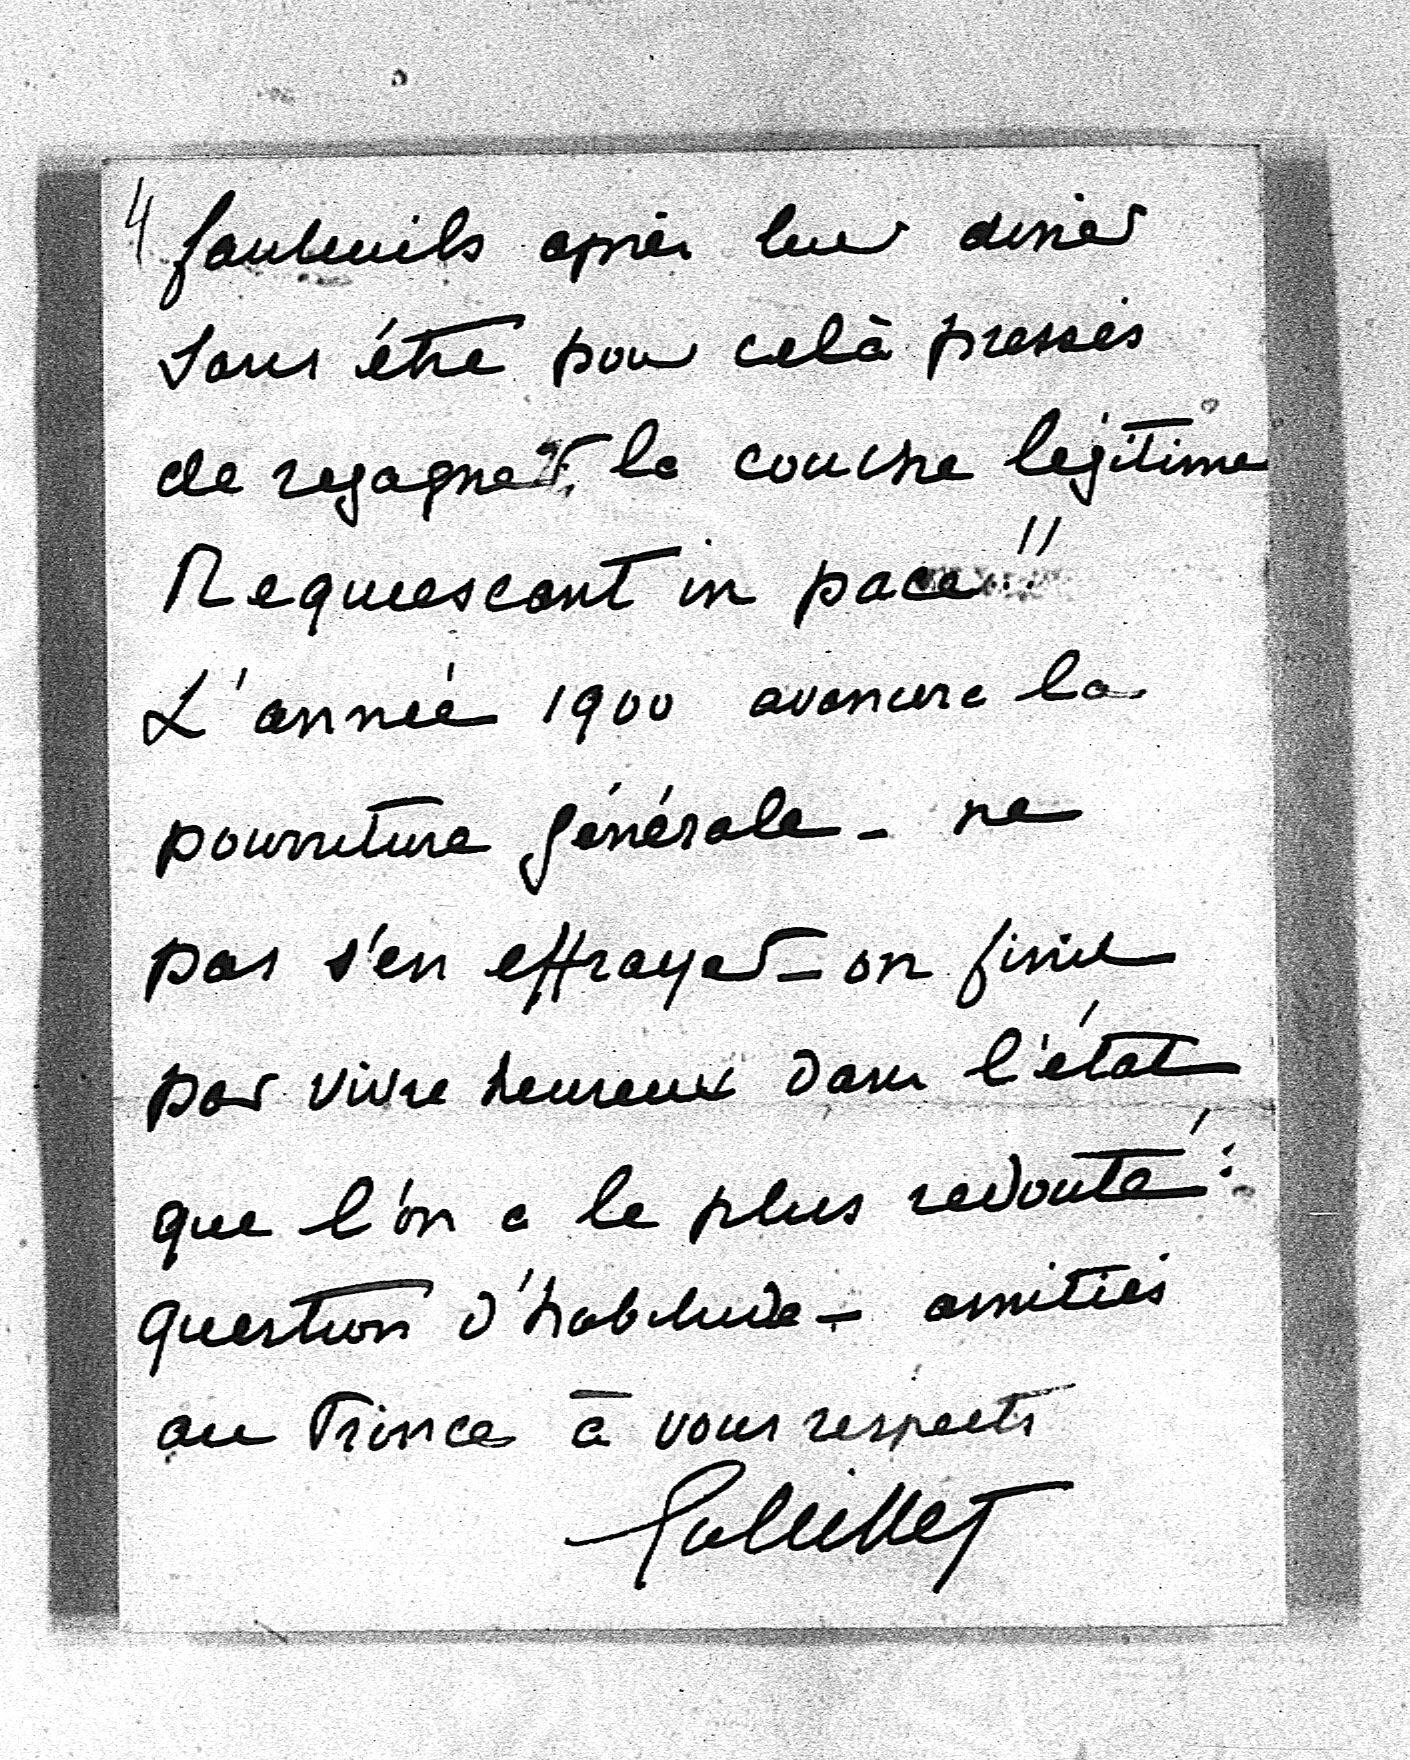 4
fauteuils après leur diner
sans être pour celà pressés
de regagner la couche légitime
Requiescant in pace !!
L'année 1900 avancera la
pourriture générale - ne
pas s'en effrayer - on finit
par vivre heureux dans l'état
que l'on a le plus redouté :
question d'habitude - amitiés
au Prince à vous respects
Galliffet